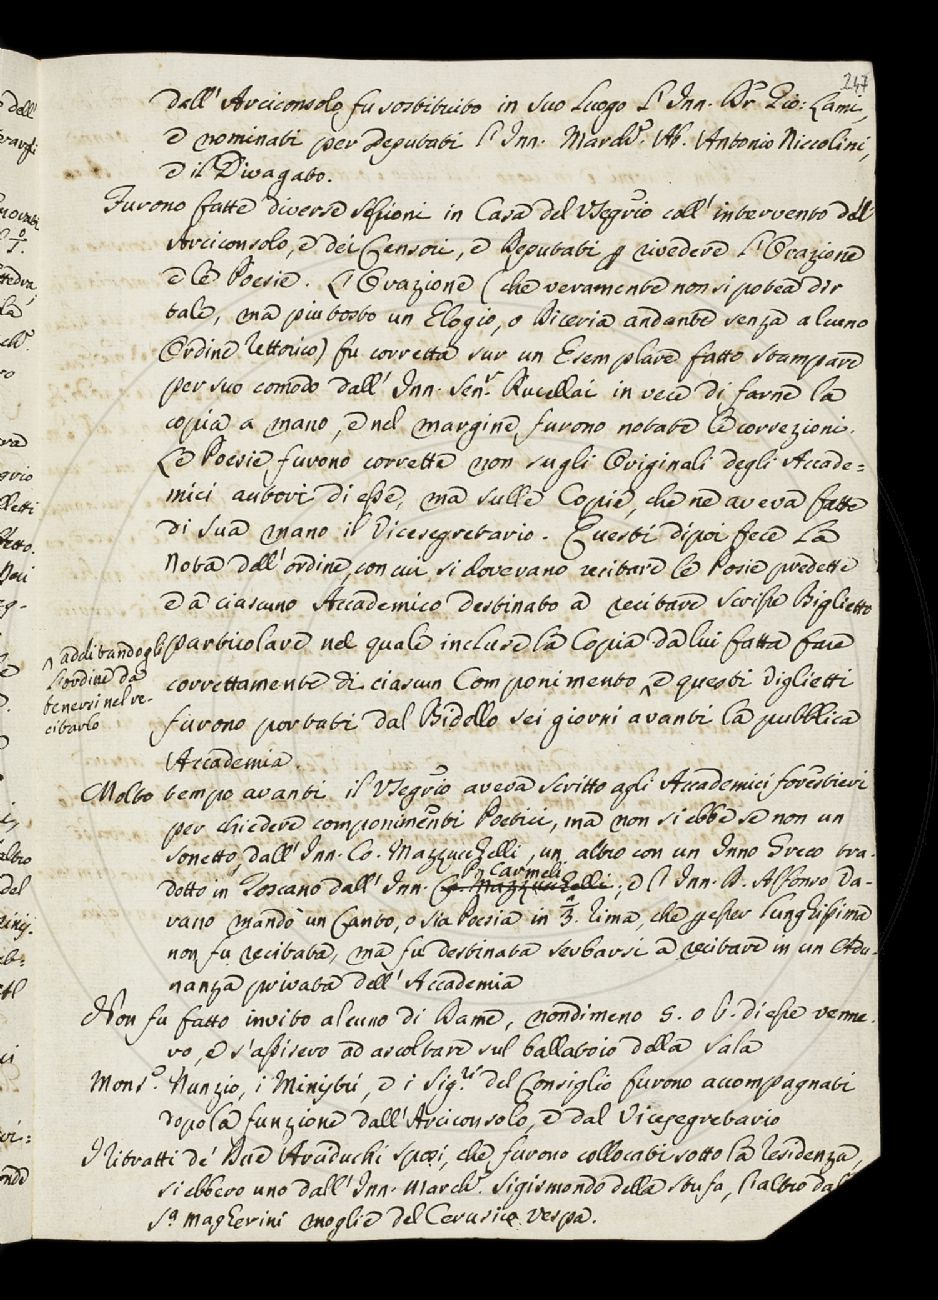 247
dall' Arciconsolo fu sostituito in suo Luogo l' Inn. Dr. Gio: Lami,
e nominati per Deputati l' Inn. March.e Ab. Antonio Niccolini,
e il Divagato.
Furono fatte diverse Sessioni in Casa del VSegrio coll' intervento dell'
Arciconsolo, e dei Censori, e Deputati p rivedere l' Orazione
e le Poesie. L' Orazione (che veramente non si potea dir
tale, ma piu tosto un Elogio, o Diceria andante senza alcuno
Ordine Rettorico) fu corretta sur un Esemplare fatto stampare
per suo comodo dall' Inn. Sen.r Rucellai in vece di farne la
copia a mano, e nel margine furono notate le correzioni.
Le Poesie furono corrette non sugli Originali degli Accade=
mici autori di esse, ma sulle Copie, che ne aveva fatte
di sua mano il Vicesegretario. Questi dipoi fece la
Nota dell' ordine, con cui si dovevano recitare le Posie predette
e a ciascuno Accademico destinato a recitare scrisse Biglietto
particolare nel quale incluse la Copia da lui fatta fare
additandogli
l' ordine da
tenersi nel re-
citarlo
correttamente di ciascun Componimento, e questi Biglietti
furono portati dal Bidello sei giorni avanti la pubblica
Accademia.
Molto tempo avanti il VSegrio aveva scritto agli Accademici forestieri
per chiedere componimenti Poetici, ma non si ebbe se non un
Sonetto dall' Inn. Co. Mazzuchelli, un altro con un Inno Greco tra-
P. Carmeli
dotto in Toscano dall' Inn. Co. Mazzuchelli; e l' Inn. P. Alfonso Va-
rano mandò un Canto, o sia Poesia in 3.a rima, che p esser lunghissima
non fu recitata, ma fu destinata serbarsi a recitare in un Adu-
nanza privata dell' Accademia
Non fu fatto invito alcuno di Dame, nondimeno 5. o 6. di esse venne-
ro, e s'assisero ad ascoltare sul ballatoio della Sala
Mons.e Nunzio, i Ministri, e i Sig.ri del Consiglio furono accompagnati
dopo la funzione dall' Arciconsolo, e dal Vicesegretario
I Ritratti de' Due Arciduchi sposi, che furono collocati sotto la Residenza,
si ebbero uno dall' Inn. March.e Sigismondo della Stufa, l'altro dal
S.a Magherini moglie del Cerusico Vespa.